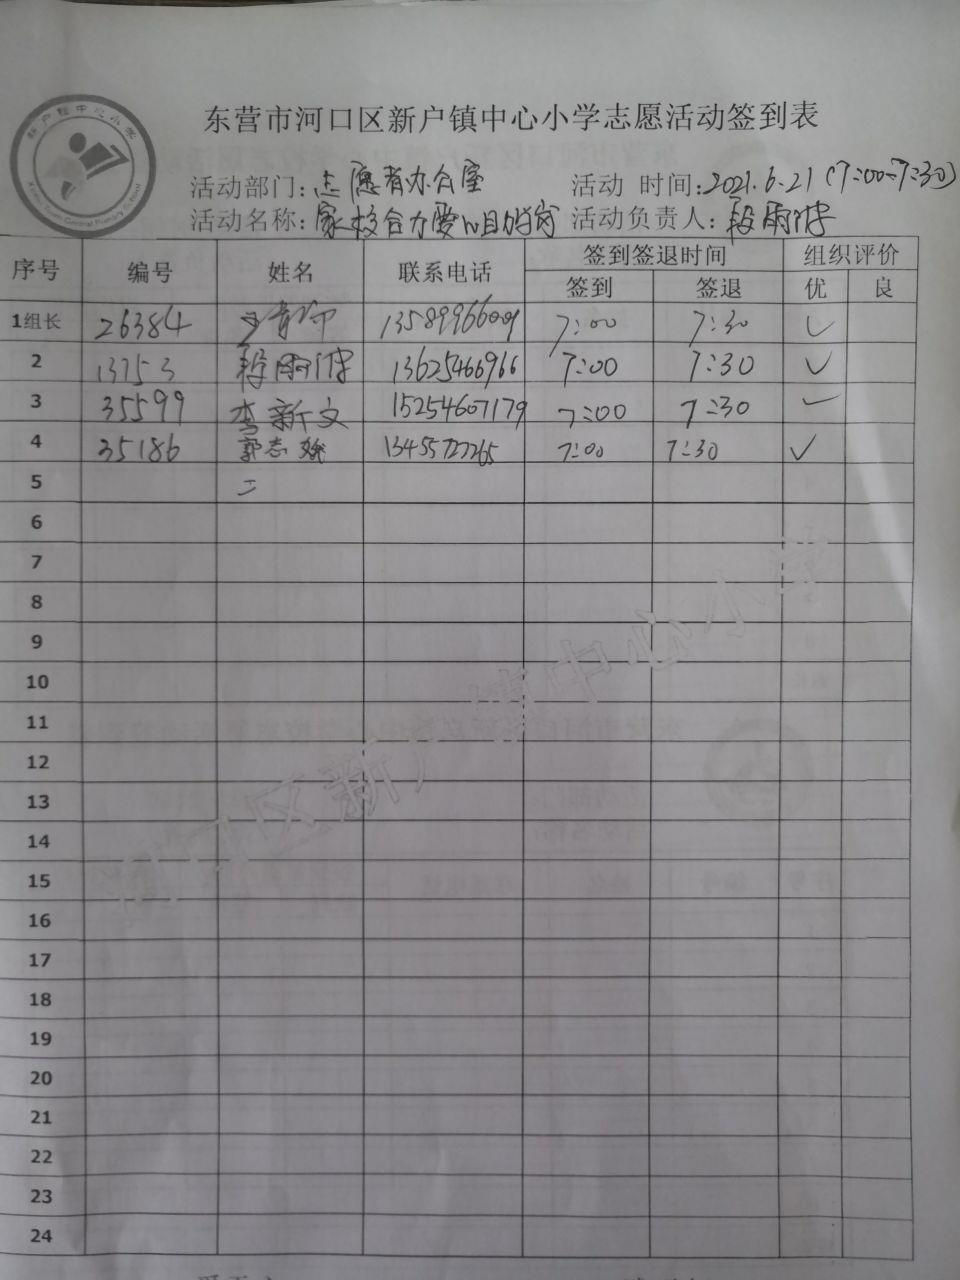 新户镇中心小学
Xinhu Town Central Primary School
东营市河口区新户镇中心小学志愿活动签到表
活动部门：志愿者办公室 活动 时间：2021.6.21（7:00-7:30）
活动名称：家校合力爱心护岗 活动负责人：段雨
序号 编号 姓名 联系电话 签到签退时间 组织评价
签到 签退 优 良
1组长 26384 13589966009 7:00 7:30 ✓
2 13753 段雨 13625466966 7:00 7:30 ✓
3 35599 李新文 15254607179 7:00 7:30 ✓
4 35186 郭志 13455727265 7:00 7:30 ✓
5
6
7
8
9
10
11
12
13
14
15
16
17
18
19
20
21
22
23
24
河口区新户镇中心小学